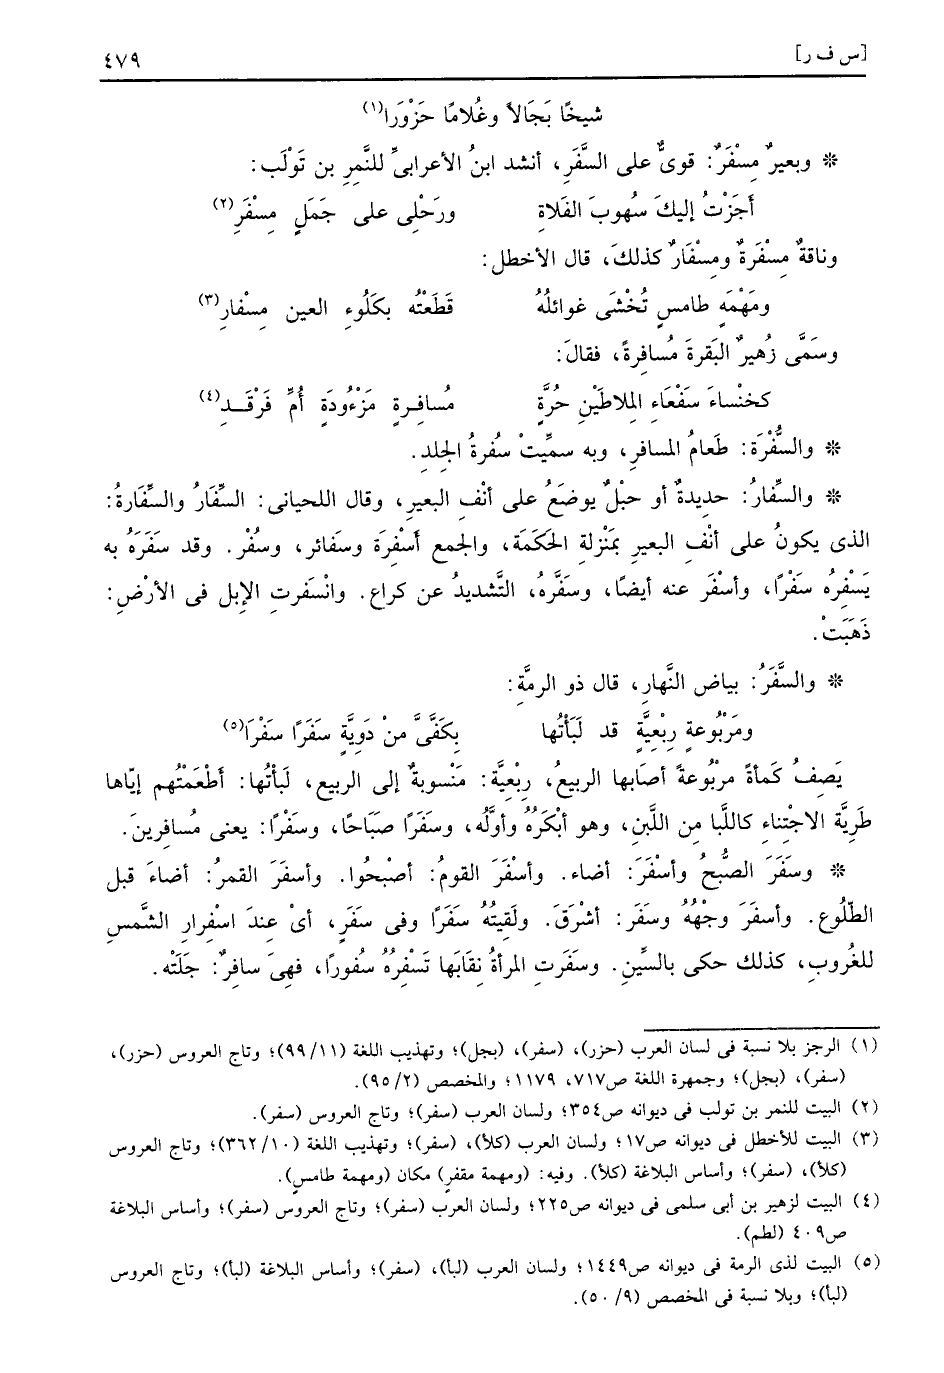 [س ف ر] ٤٧٩
شيخًا بَجَالاً وغُلامًا حَزْوَرا(١)
* وبعيرٌ مِسْفَرٌ: قوىٌّ على السَّفَرِ، أنشد ابنُ الأعرابىِّ للنَّمِرِ بن تَوْلَب:
أَجَزْتُ إليكَ سُهوبَ الفَلاةِ ورَحْلِى على جَمَلٍ مِسْفَرِ(٢)
وناقةٌ مِسْفَرةٌ ومِسْفَارٌ كذلكَ، قال الأخطل:
ومَهْمَهٍ طامسٍ تُخْشَى غوائلُهُ قَطَعْتُه بكَلُوءِ العين مِسْفارِ(٣)
وسَمَّى زُهيرٌ البَقرةَ مُسافرةً، فقالَ:
كخنْساءَ سَفْعَاءِ المِلاطَيْنِ حُرَّةٍ مُسافرةٍ مَزْءُودَةٍ أُمِّ فَرْقَـدِ(٤)
* والسُّفْرَة: طَعامُ المسافرِ، وبه سميِّتْ سُفرةُ الجِلدِ.
* والسِّفارُ: حديدةٌ أو حبْلٌ يوضَعُ على أنْفِ البعيرِ، وقال اللحيانى: السِّفَارُ والسِّفَارةُ:
الذى يكونُ على أنْفِ البعيرِ بمَنْزلةِ الحَكَمَة، والجمع أسْفِرَة وسَفائر، وسفُرْ. وقد سَفَرَهُ به
يَسْفِرُه سفْرًا، وأسْفَرَ عنه أيضًا، وسَفَّرهُ، التَّشديدُ عن كراع. وانْسَفرتِ الإبل فى الأرْضِ:
ذَهَبَتْ.
* والسَّفَرُ: بياض النَّهارِ، قال ذو الرمَّةِ:
ومَرْبُوعةٍ رِبْعيَّةٍ قد لَبَأْتُها بِكَفَّىَّ منْ دَوِيَّةٍ سَفَرًا سفْرَا(٥)
يَصِفُ كَمأةً مرْبُوعةً أصَابها الربيعُ، رِبْعيَّة: مَنْسوبةٌ إلى الربيع، لَبأْتُها: أطْعَمْتُهم إيّاها
طَرِيَّة الاجْتِناء كاللَّبا مِن اللَّبنِ، وهو أبْكَرُهُ وأوَّلُه، وسَفَرًا صبَاحًا، وسفْرًا: يعنى مُسافرينَ.
* وسَفَرَ الصُّبحُ وأسْفَرَ: أضاء. وأسْفَرَ القومُ: أصْبحُوا. وأسفَرَ القمرُ: أضاءَ قبل
الطّلُوع. وأسفَرَ وجْهُهُ وسفَرَ: أشْرَقَ. ولَقِيتُهُ سَفَرًا وفى سَفَرٍ، أىْ عِندَ اسْفِرارِ الشَّمسِ
للغُروبِ، كذلك حكى بالسيِّنِ. وسفَرَتِ المرأةُ نِقَابَها تَسْفِرُهُ سُفورًا، فهِىَ سافرٌ: جلَتْه.
(١) الرجز بلا نسبة فى لسان العرب (حزر)، (سفر)، (بجل)؛ وتهذيب اللغة (٩٩/١١)؛ وتاج العروس (حزر)،
(سفر)، (بجل)؛ وجمهرة اللغة ص٧١٧، ١١٧٩؛ والمخصص (٩٥/٢).
(٢) البيت للنمر بن تولب فى ديوانه ص٣٥٤؛ ولسان العرب (سفر)؛ وتاج العروس (سفر).
(٣) البيت للأخطل فى ديوانه ص١٧؛ ولسان العرب (كلأ)، (سفر)؛ وتهذيب اللغة (٣٦٢/١٠)؛ وتاج العروس
(كلأ)، (سفر)؛ وأساس البلاغة (كلأ). وفيه: (ومهمة مقفرٍ) مكان (ومهمة طامسٍ).
(٤) البيت لزهير بن أبى سلمى فى ديوانه ص٢٢٥؛ ولسان العرب (سفر)؛ وتاج العروس (سفر)؛ وأساس البلاغة
ص٤٠٩ (لطم).
(٥) البيت لذى الرمة فى ديوانه ص١٤٤٩؛ ولسان العرب (لبأ)، (سفر)؛ وأساس البلاغة (لبأ)؛ وتاج العروس
(لبأ)؛ وبلا نسبة فى المخصص (٥٠/٩).